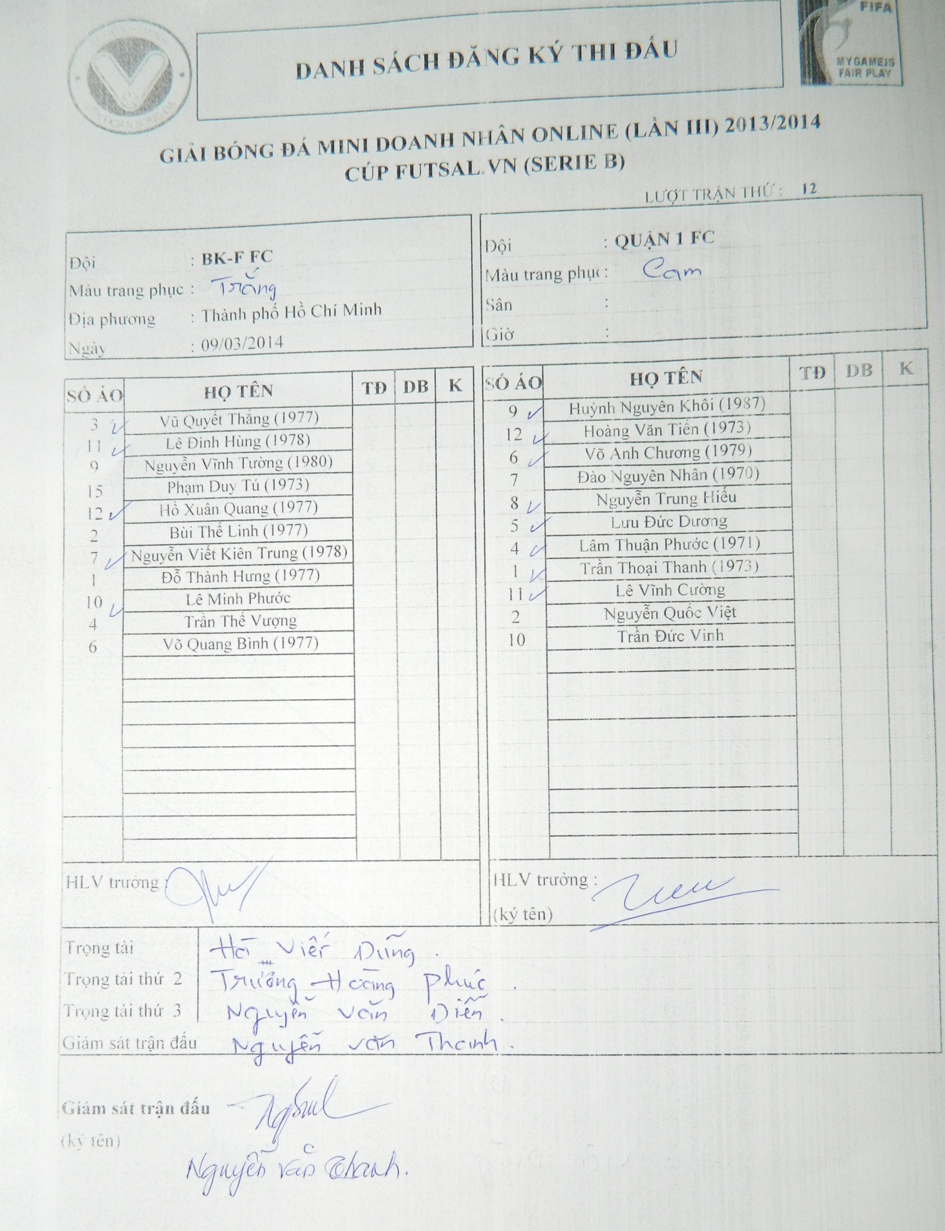 DANH SÁCH ĐĂNG KÝ THI ĐẤU
FIFA
MYGAMEIS
FAIR PLAY
GIẢI BÓNG ĐÁ MINI DOANH NHÂN ONLINE (LẦN III) 2013/2014
CÚP FUTSAL.VN (SERIE B)
LƯỢT TRẬN THỨ : 12
Đội : BK-F FC
Màu trang phục : Trắng
Địa phương : Thành phố Hồ Chí Minh
Ngày : 09/03/2014
Đội : QUẬN 1 FC
Màu trang phục : Cam
Sân :
Giờ :
SỐ ÁO HỌ TÊN TĐ DB K
3 Vũ Quyết Thắng (1977)
11 Lê Đình Hùng (1978)
9 Nguyễn Vĩnh Tường (1980)
15 Phạm Duy Tú (1973)
12 Hồ Xuân Quang (1977)
2 Bùi Thế Linh (1977)
7 Nguyễn Viết Kiên Trung (1978)
1 Đỗ Thành Hưng (1977)
10 Lê Minh Phước
4 Trần Thế Vượng
6 Võ Quang Bình (1977)
SỐ ÁO HỌ TÊN TĐ DB K
9 Huỳnh Nguyên Khôi (1987)
12 Hoàng Văn Tiến (1973)
6 Võ Anh Chương (1979)
7 Đào Nguyên Nhân (1970)
8 Nguyễn Trung Hiếu
5 Lưu Đức Dương
4 Lâm Thuận Phước (1971)
1 Trần Thoại Thanh (1973)
11 Lê Vĩnh Cường
2 Nguyễn Quốc Việt
10 Trần Đức Vinh
HLV trưởng :
HLV trưởng :
(ký tên)
Trọng tài Hà Viết Dũng .
Trọng tài thứ 2 Trương Hoàng Phúc .
Trọng tài thứ 3 Nguyễn Văn Diễn .
Giám sát trận đấu Nguyễn Văn Thanh .
Giám sát trận đấu
(ký tên)
Nguyễn Văn Thanh.